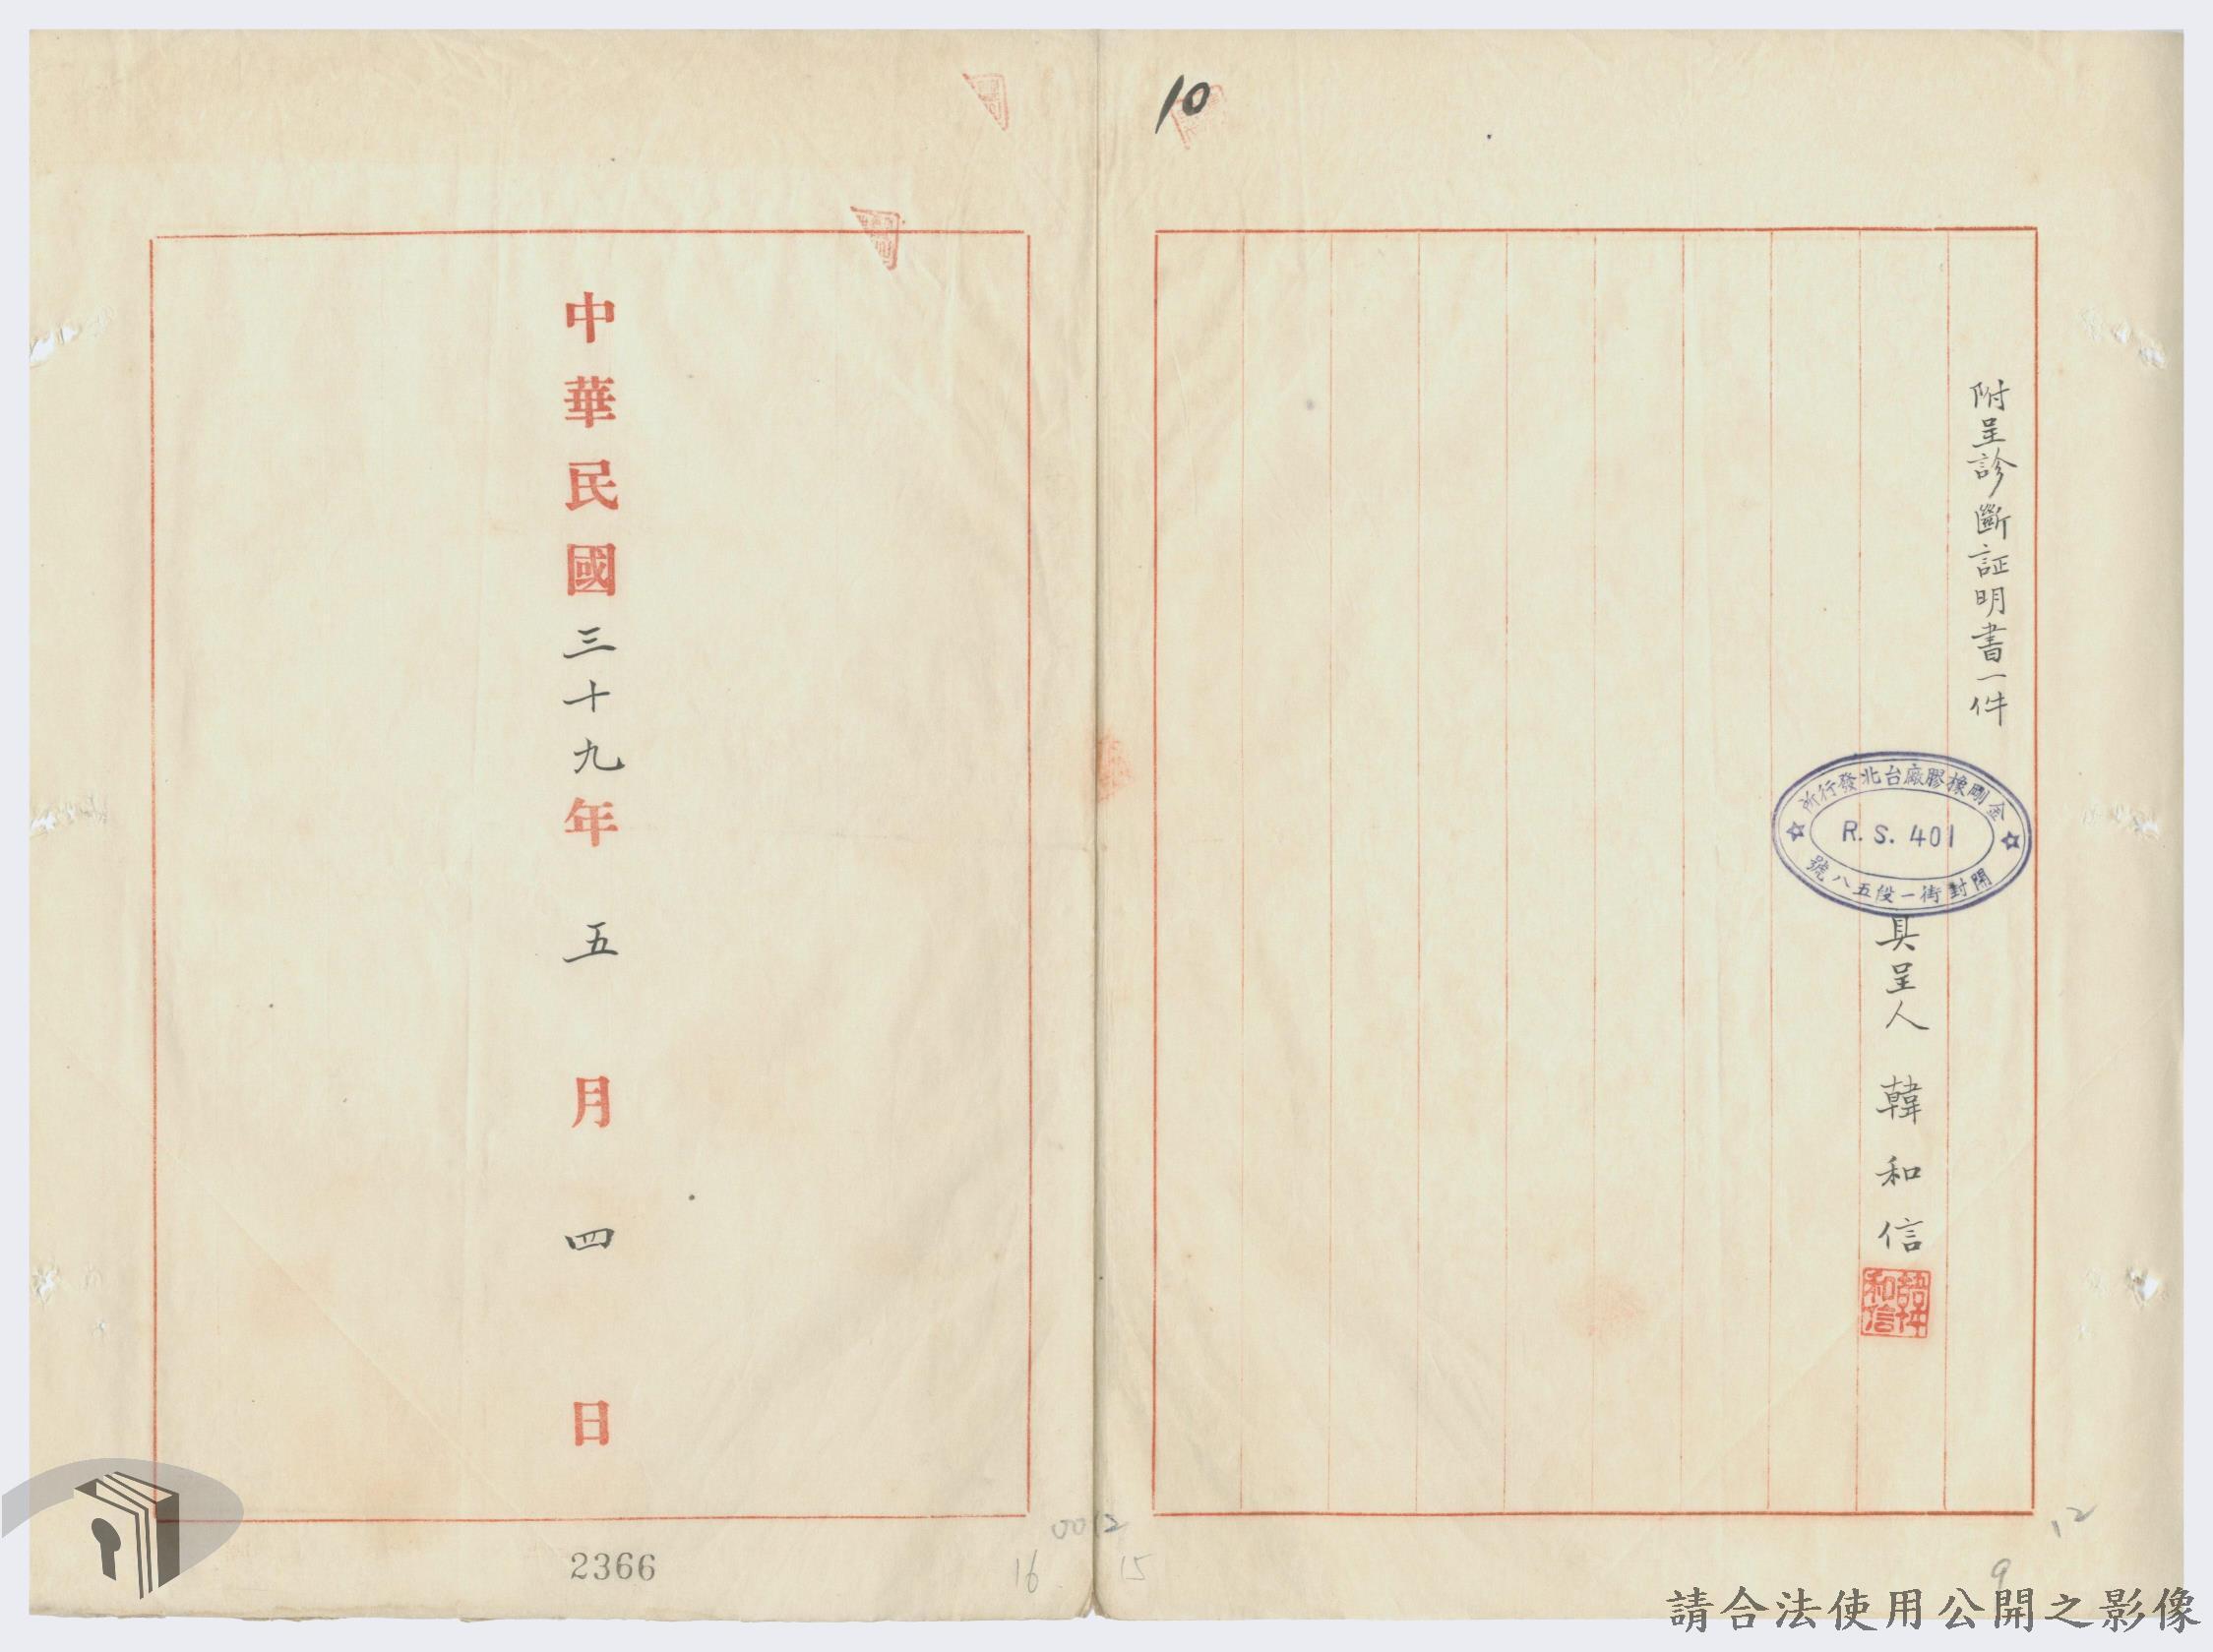 10
附呈診斷証明書一件
金剛橡膠廠台北發行所
R.S. 401
開封街一段五八號
具呈人 韓和信
韓和信
中華民國三十九年五月四日
0012
16
15
12
9
2366
請合法使用公開之影像